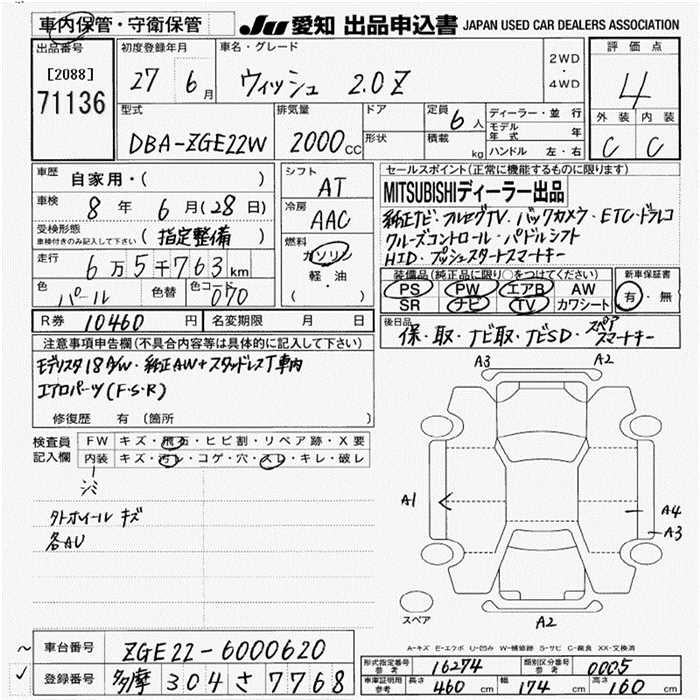 車内保管・守衛保管
JU 愛知 出品申込書 JAPAN USED CAR DEALERS ASSOCIATION
出品番号
[2088]
71136
初度登録年月
27 6月
車名・グレード
ウィッシュ 2.0Z
2WD
・
4WD
評価点
4
外装 内装
C C
型式
DBA-ZGE22W
排気量
2000cc
ドア
形状
定員 6人
積載 kg
ディーラー・並行
モデル年式 年
ハンドル 左・右
車歴 自家用・( )
車検 8年 6月(28日)
受検形態
車検付きのみ記入して下さい (指定整備)
走行 6万5千763km
色 パール 色替 色コード 070
シフト AT
冷房 AAC
燃料
ガソリン
軽・油
( )
セールスポイント(正常に機能するものに限ります)
MITSUBISHIディーラー出品
純正ナビ・フルセグTV.バックカメラ・ETC・ドラレコ
クルーズコントロール・パドルシフト
HID・プッシュスタートスマートキー
装備品(純正品に限り○をつけてください)
PS PW エアB AW
SR ナビ TV カワシート
新車保証書
有・無
R券 10460円 名変期限 月 日
後日品
保・取・ナビ取・ナビSD・スペアスマートキー
注意事項申告欄(不具合内容等は具体的に記入して下さい)
モデリスタ18A/W・純正AW+スタッドレスT車内
エアロパーツ(F・S・R)
修復歴 有(箇所 )
検査員記入欄
FW キズ・飛石・ヒビ割・リペア跡・X要
内装 キズ・汚レ・コゲ・穴・スレ・キレ・破レ
シミ
タトホイール キズ
各AU
A3 A2
A1
A4
A3
スペア
A2
A-キズ E-エクボ U-凹み W-補修跡 S-サビ C-腐食 XX-交換済
車台番号 ZGE22-6000620
登録番号 多摩 304 さ 7768
形式指定番号 参考 16274 類別区分番号 参考 0005
車庫証明用 参考 長さ 460cm 幅 174cm 高さ 160cm